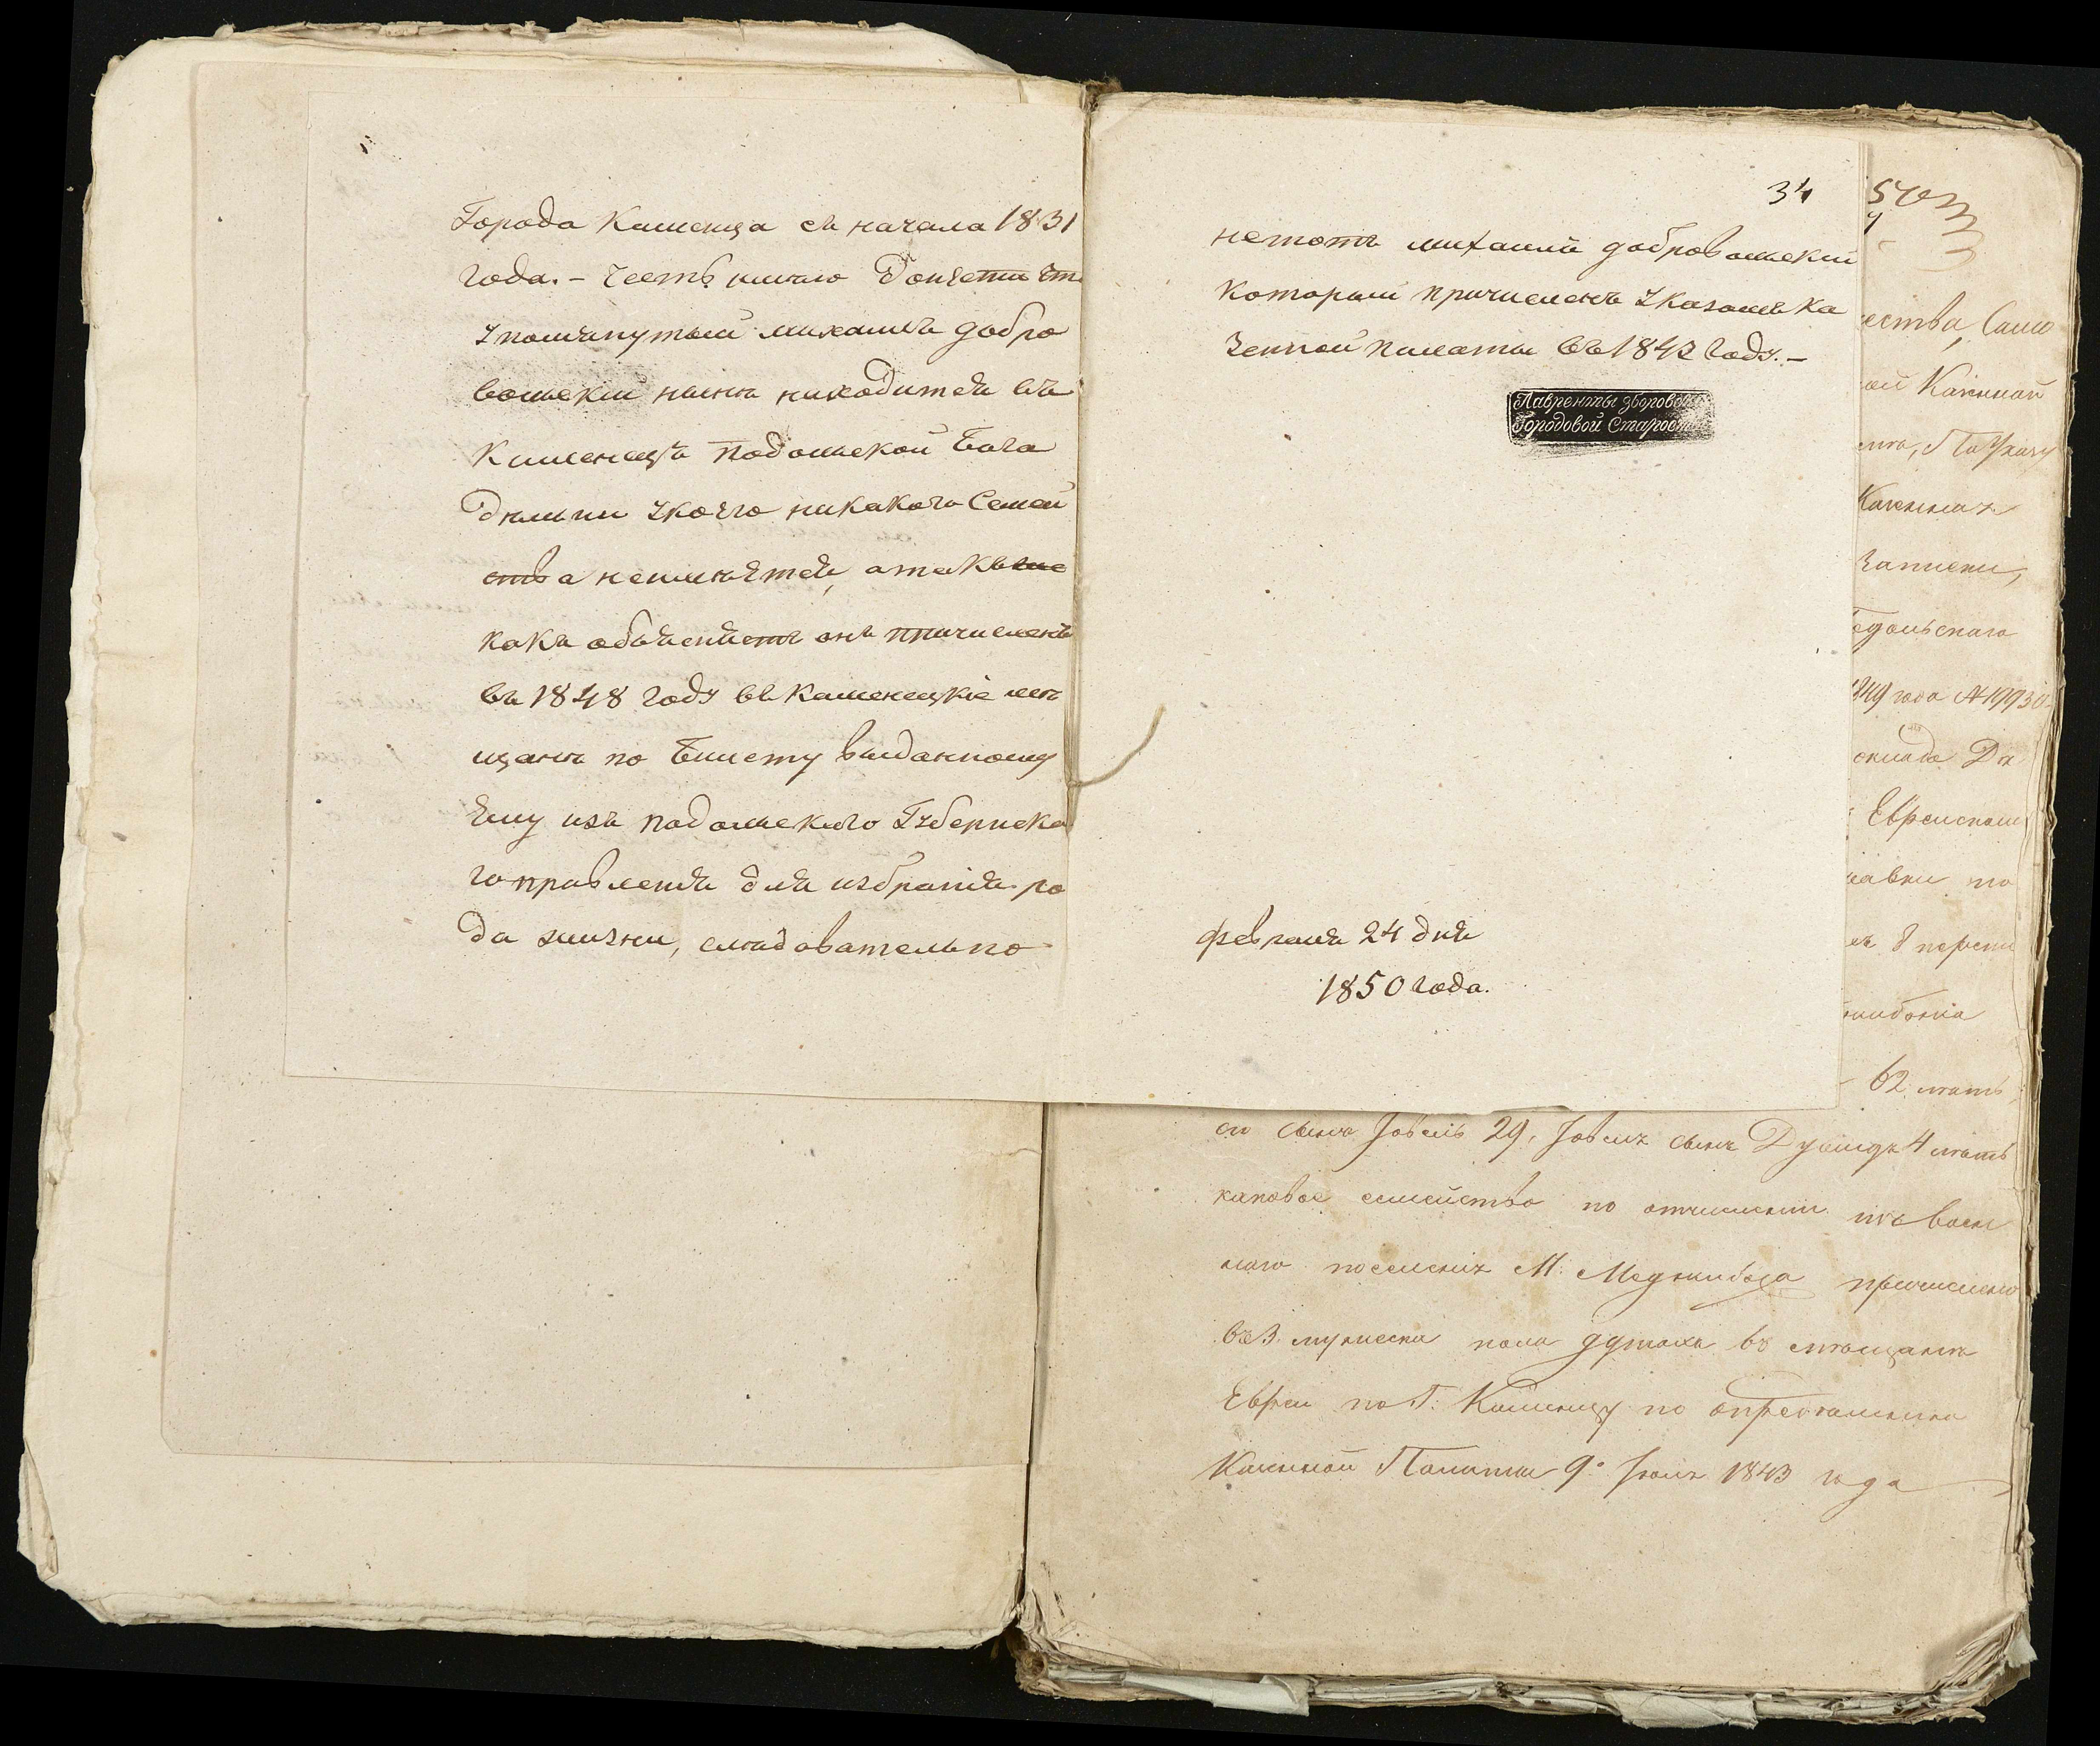 Города Каменца съ начала 1831
года. – Честь имею Донести что
упомянутый михаилъ добро
вольскій нынѣ находится въ
Каменецъ подольской Бога
дѣльни укоего никакого Семей
ства неимѣется, атакже
какъ объяснѣетъ онъ причисленъ
въ 1848 году въ Каменецкіе мѣ
щанѣ по билету выданному
Ему изъ подольского Губернска
го правленія для избранія ро
да жизни, следовательно
34
нетотъ михаилъ добровольскій
который причисленъ указомъ Ка
зенной палаты въ 1842 году. –
Лаврентъ зборовск
Городовой Старост
февраля 24 дня
1850 года.
ества, Само
ой Казенной
Казенная
Записки,
одольскаго
1849 года №19930
оклада
Еврейском
равки по
62 лѣтъ
его сынъ Іовель 29, Іовеля сынъ Дувидъ 4 лѣтъ
каковое семейство по отчислении изъ воен
наго поселенія М: Меджибожа причислено
въ 3 мужеска пола душахъ въ мѣщанѣ
Евреи по Г: Каменцу по определению
Казенной Палаты 9: Іюля 1843 года